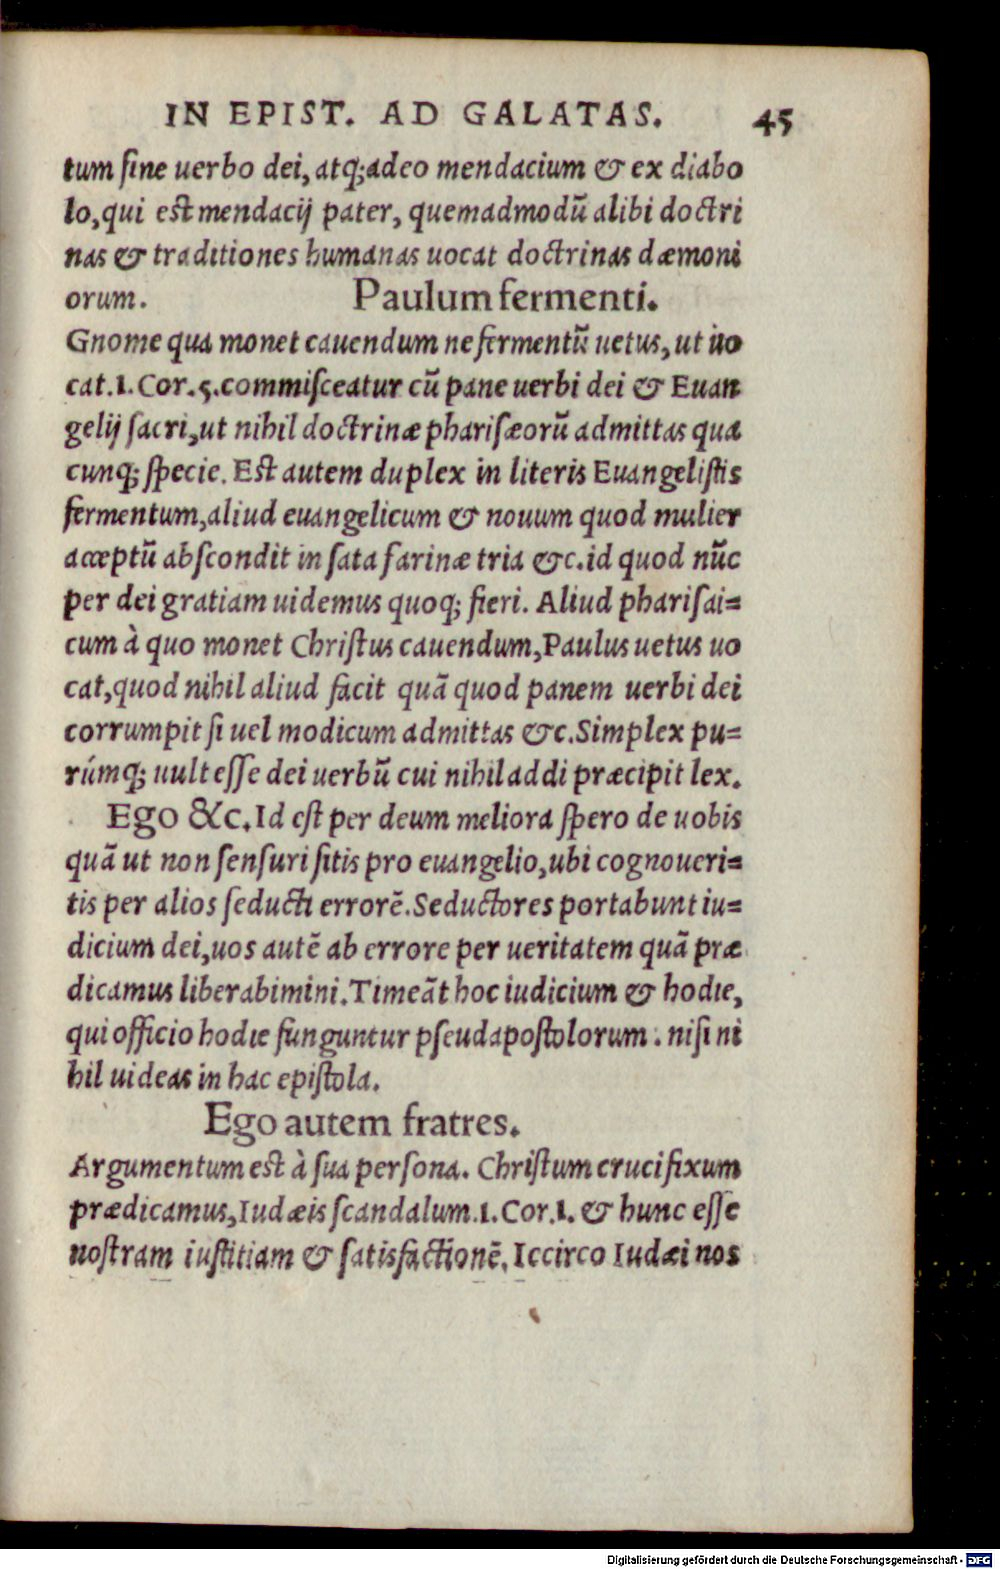 IN EPIST. AD GALATAS. 45
tum sine uerbo dei, atq; adeo mendacium & ex diabo
lo, qui est mendacij pater, quemadmodū alibi doctri
nas & traditiones humanas uocat doctrinas dæmoni
orum. Paulum fermenti.
Gnome qua monet cauendum ne fermentū uetus, ut uo
cat. 1. Cor. 5. commisceatur cū pane uerbi dei & Euan
gelij sacri, ut nihil doctrinæ pharisæorū admittas qua
cunq; specie. Est autem duplex in literis Euangelistis
fermentum, aliud euangelicum & nouum quod mulier
acceptū abscondit in sata farinæ tria &c. id quod nūc
per dei gratiam uidemus quoq; fieri. Aliud pharisai=
cum à quo monet Christus cauendum, Paulus uetus uo
cat, quod nihil aliud facit quā quod panem uerbi dei
corrumpit si uel modicum admittas &c. Simplex pu=
rúmq; uult esse dei uerbū cui nihil addi præcipit lex.
Ego &c. Id est per deum meliora spero de uobis
quā ut non sensuri sitis pro euangelio, ubi cognoueri=
tis per alios seducti errorē. Seductores portabunt iu=
dicium dei, uos autē ab errore per ueritatem quā præ
dicamus liberabimini. Timeāt hoc iudicium & hodie,
qui officio hodie funguntur pseudapostolorum: nisi ni
hil uideas in hac epistola.
Ego autem fratres.
Argumentum est à sua persona. Christum crucifixum
prædicamus, Iudæis scandalum. 1. Cor. 1. & hunc esse
nostram iustitiam & satisfactionē. Iccirco Iudæi nos
Digitalisierung gefördert durch die Deutsche Forschungsgemeinschaft - DFG